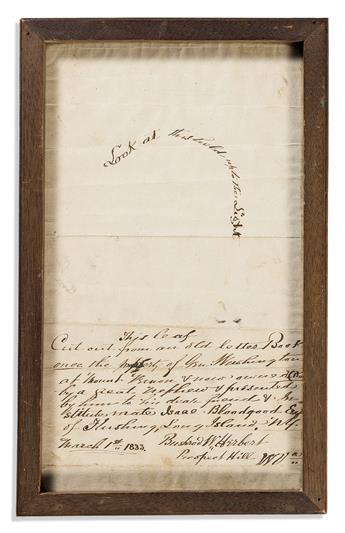 Look at this held up to the Light
This leaf
Cut out from an old letter Book
once the property of Gen. Washington
at Mount Vernon & now owned
by a great Nephew & presented
by him to his dear friend &
mate Isaac Bloodgood Esq
of Flushing Long Island N.Y.
March 1st 1833. Bushrod W. Herbert
Prospect Hill Va